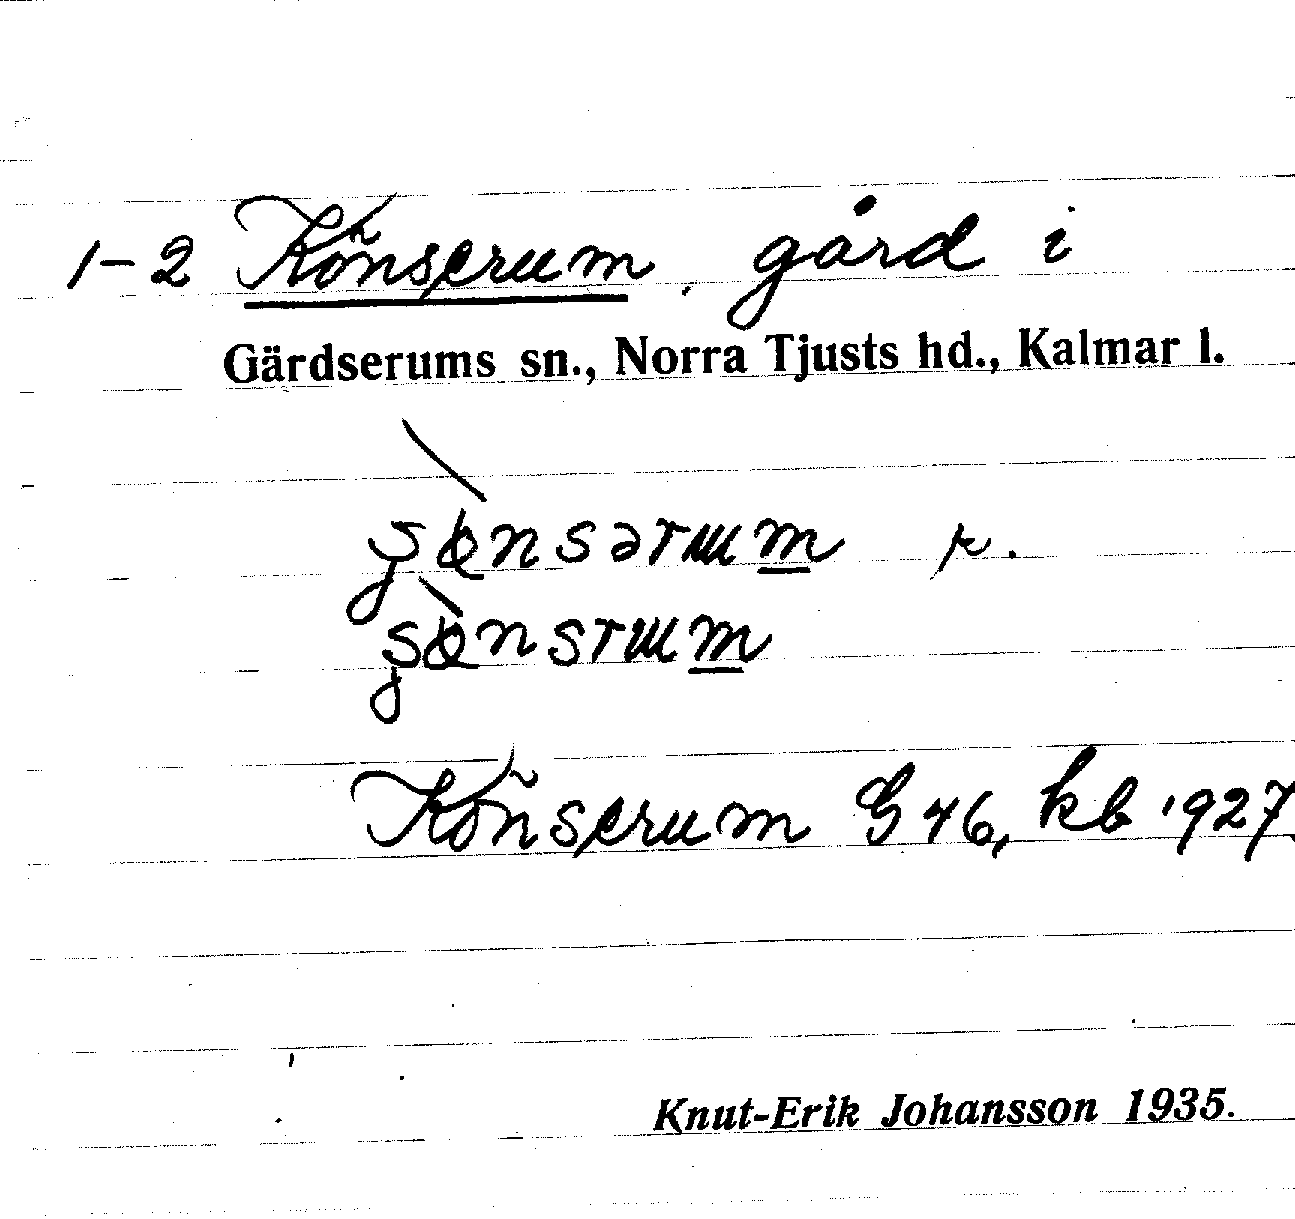 1-2 Könserum, gård i
Gärdserums sn., Norra Tjusts hd., Kalmar l.
Könserum G 46, kb 1927
Knut-Erik Johansson 1935.